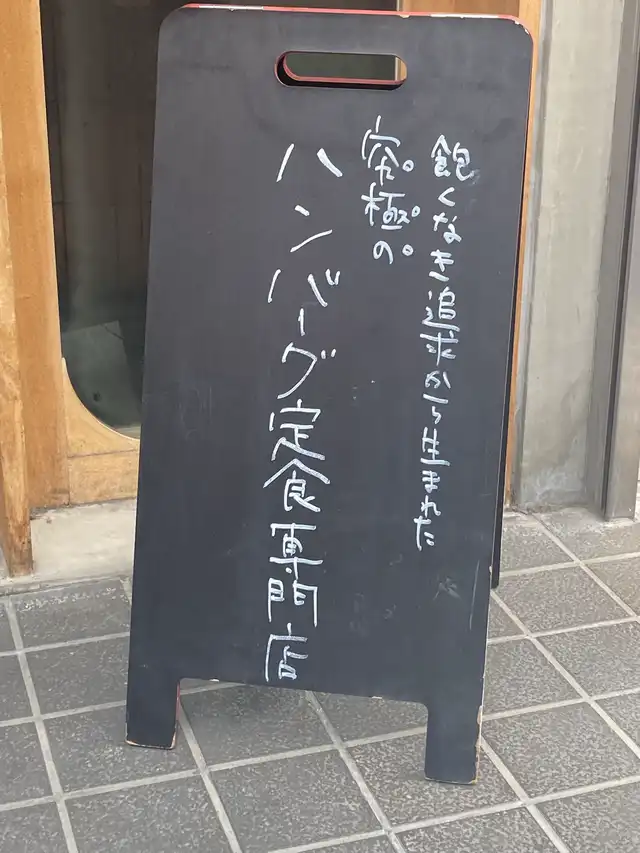 飽くなき追求から生まれた
究極の
ハンバーグ定食専門店